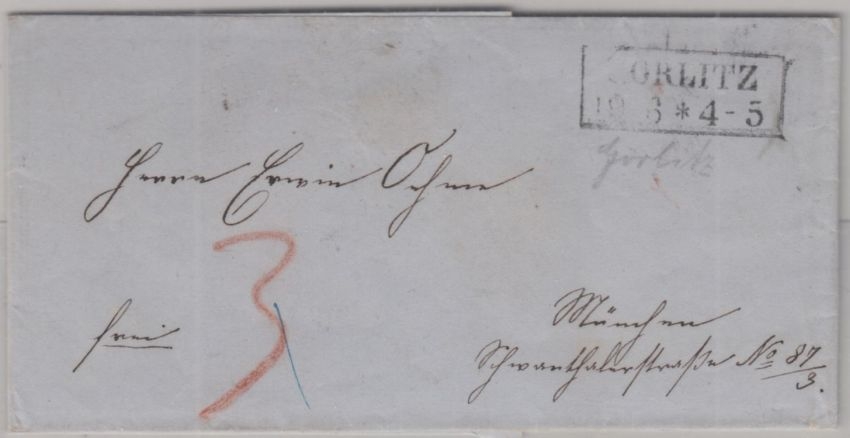 GÖRLITZ
* 4-5
Görlitz
Herrn Erwin Oehme
3
frei
München
Schwanthalerstraße No 87/3.